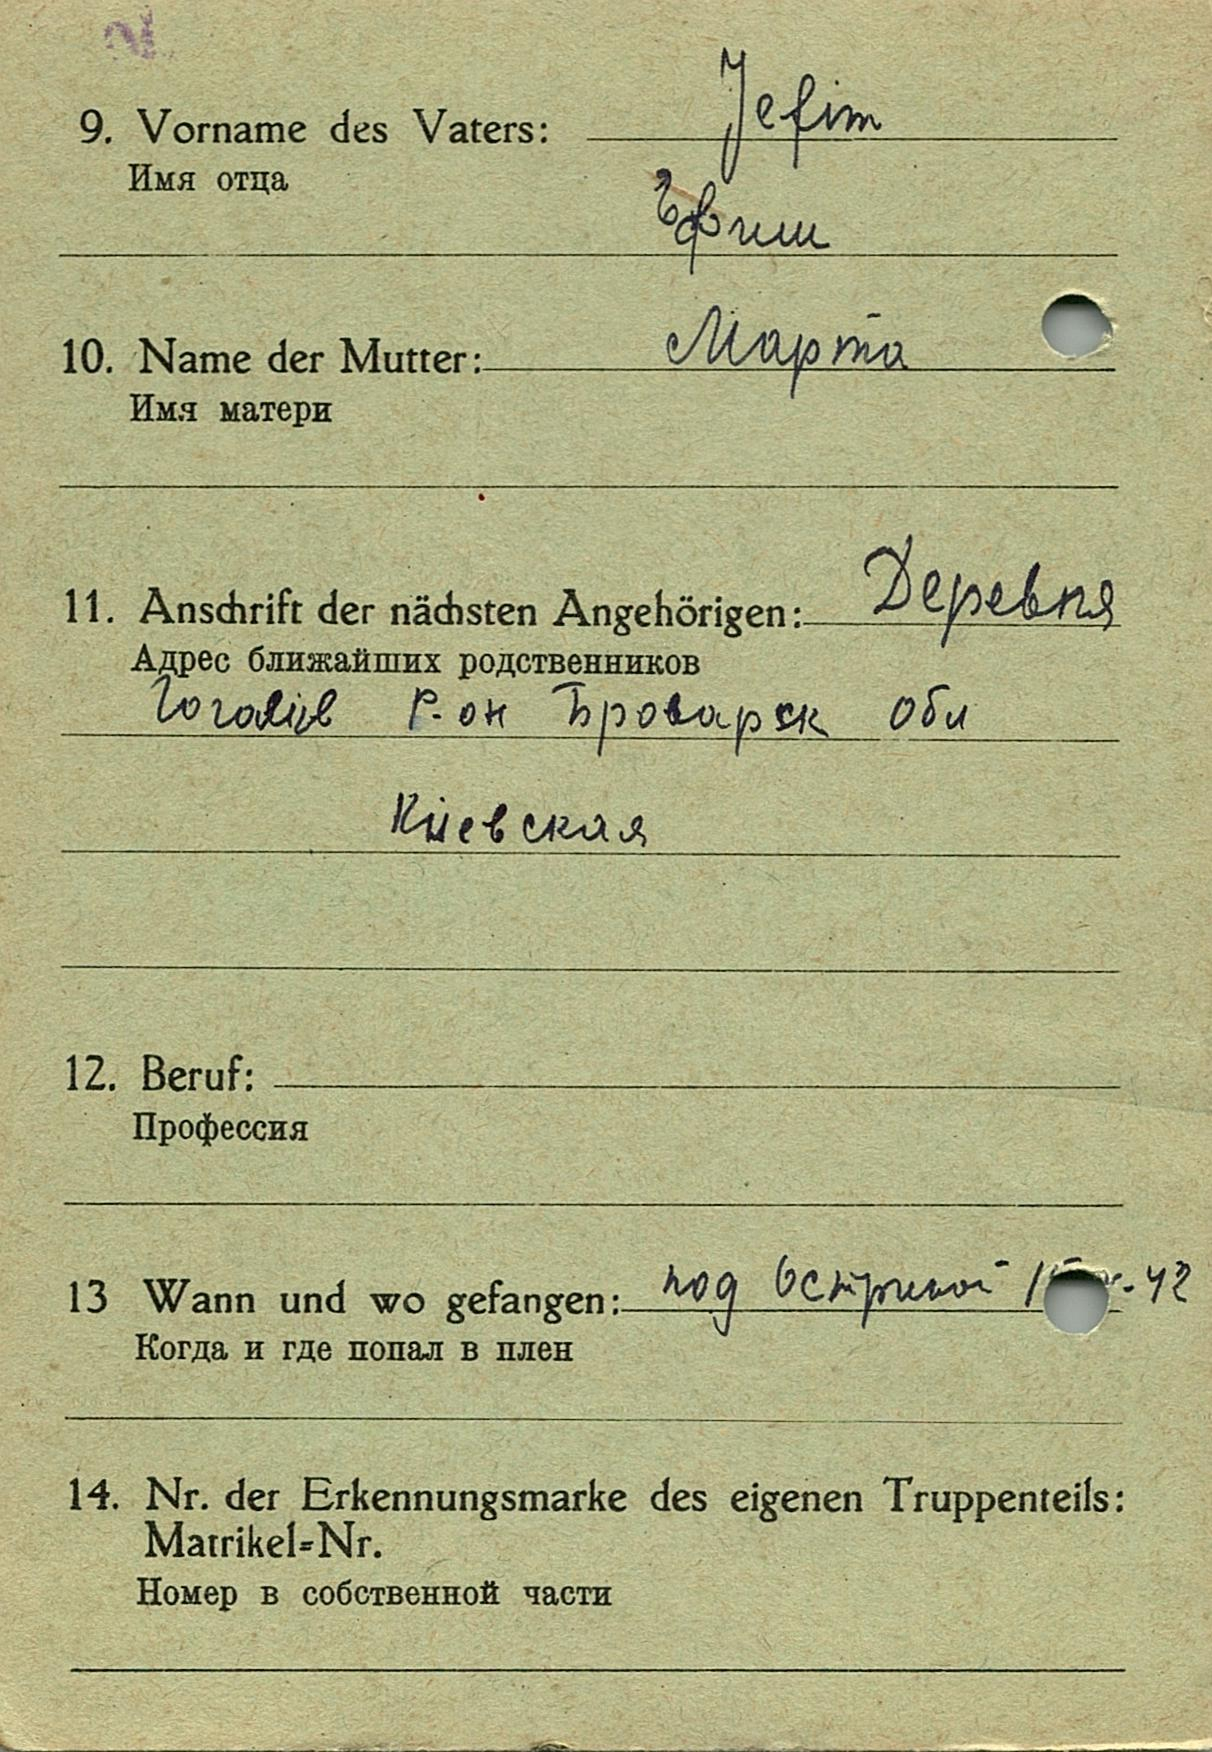 9. Vorname des Vaters: Jefim
Имя отца
Ефим
10. Name der Mutter: Марта
Имя матери
11. Anschrift der nächsten Angehörigen: Деревня
Адрес ближайших родственников
Гоголів Р-он Броварск обл
Киевская
12. Beruf:
Профессия
13 Wann und wo gefangen: под
Когда и где попал в плен
14. Nr. der Erkennungsmarke des eigenen Truppenteils:
Matrikel=Nr.
Номер в собственной части